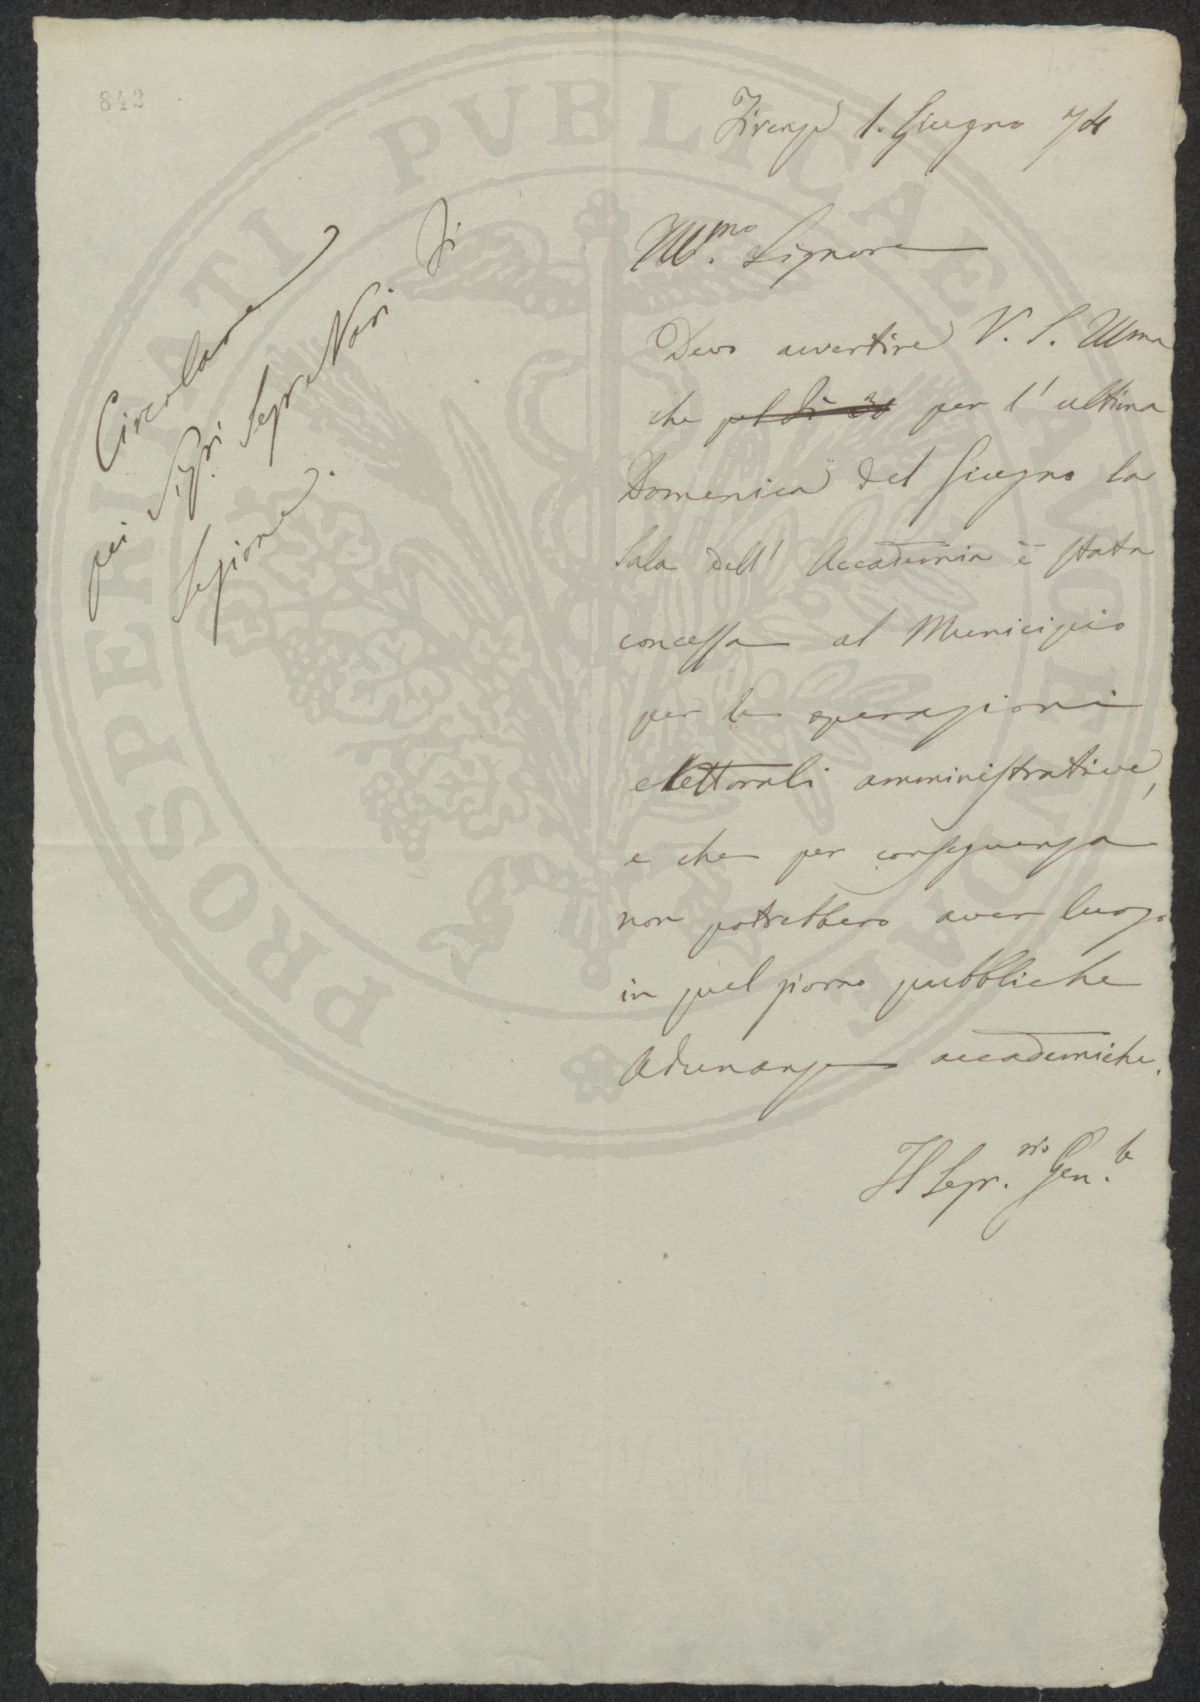 842
Firenze 1. Giugno 74
Circolare
pei Sigri. Segretari di
Sezione.
Ill.mo Signore
Devo avvertire V. S. Illma
che pel dì 30 per l'ultima
Domenica del Giugno la
Sala dell'Accademia è stata
concessa al Municipio
per le operazioni
elettorali amministrative,
e che per conseguenza
non potrebbero aver luogo
in quel giorno pubbliche
Adunanze accademiche.
Il Segr.rio Gen.le
PROSPERITATI PVBLICAE AVGENDAE